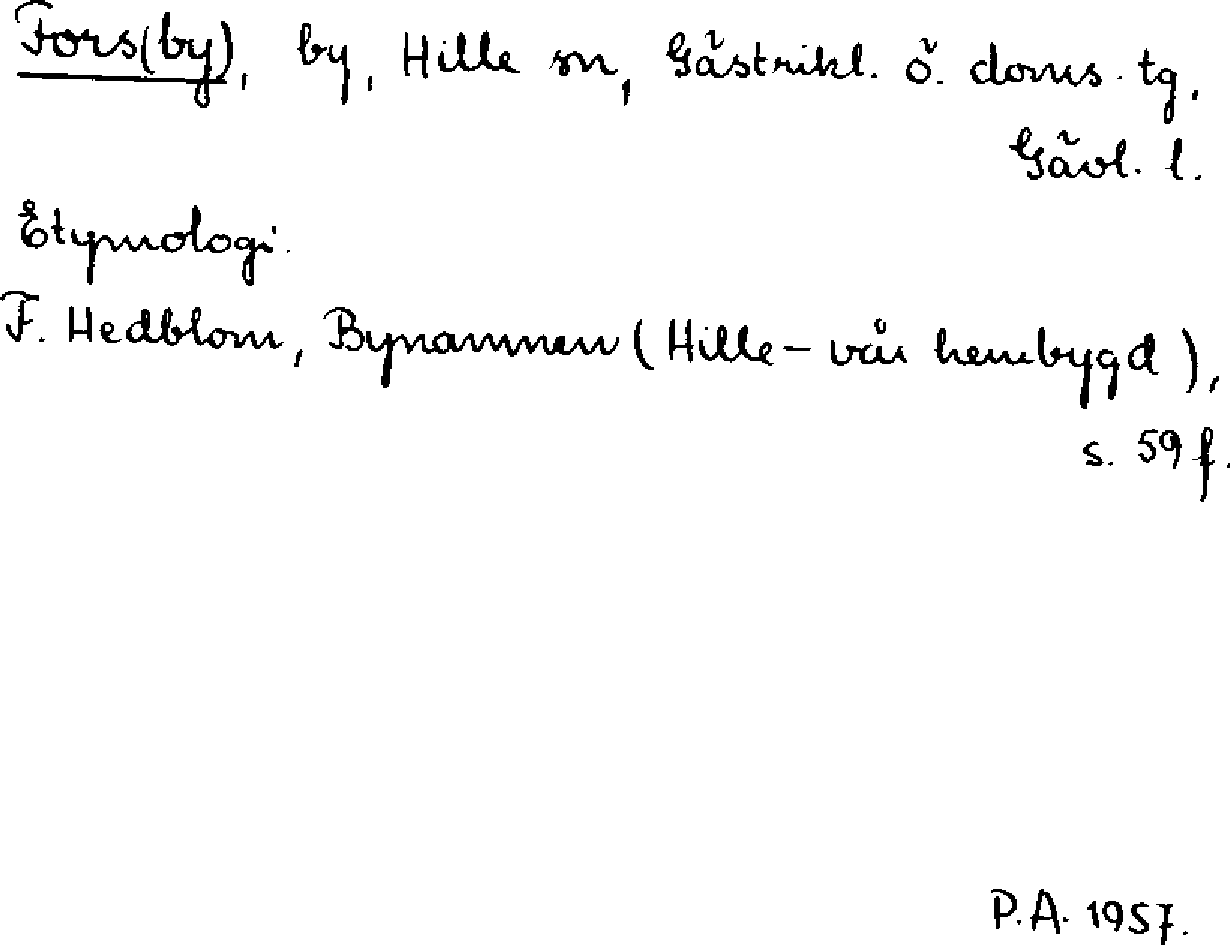 Fors(by), by, Hille sn, Gästrikl. ö. doms. tg.
Gävl. l.
Etymologi.
F. Hedblom, Bynamnen (Hille – vår hembygd),
s. 59 f.
P.A. 1957.